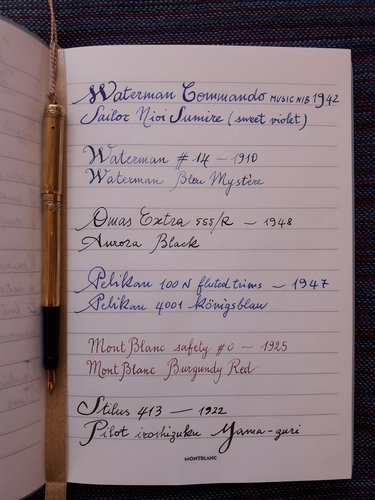 Waterman Commando MUSIC NIB 1942
Sailor Nioi Sumire (sweet violet)
Waterman # 14 - 1910
Waterman Bleu Mystère
Omas Extra 555/R - 1948
Aurora Black
Pelikan 100 N fluted trims - 1947
Pelikan 4001 königsblau
MontBlanc safety #0 - 1925
MontBlanc Burgundy Red
Stilus 413 — 1922
Pilot iroshizuku Yama-guri
MONTBLANC